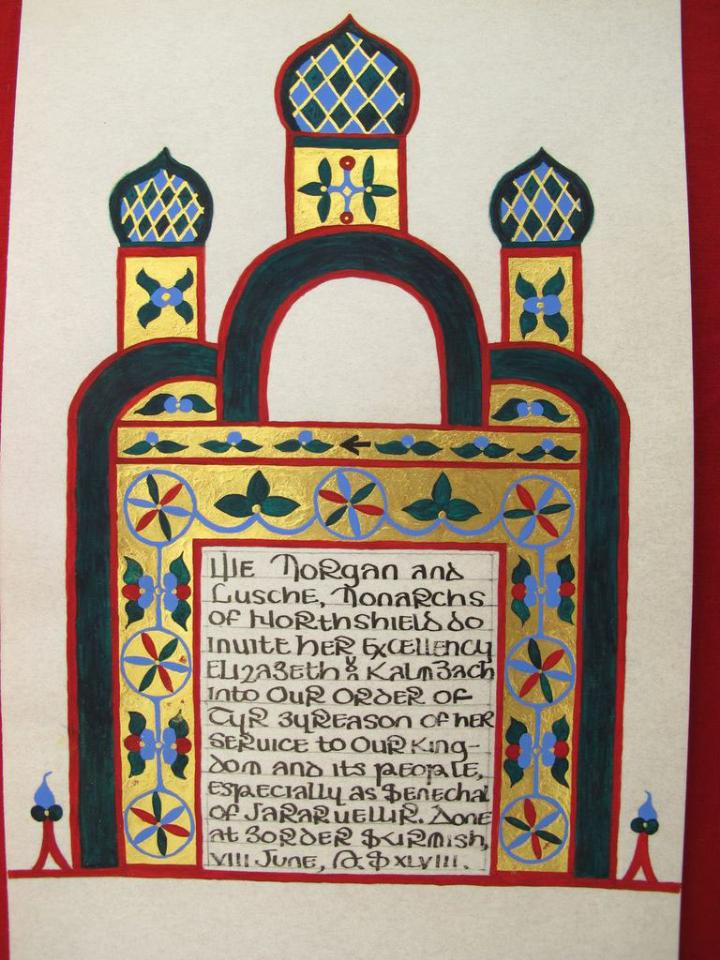 We Morgan and
Lusche, Monarchs
of Northshield do
invite her Excellency
Elizabeth Kalmbach
into Our Order of
Tyr by reason of her
service to Our King-
dom and its people,
especially as Senechal
of Jararvellir. Done
at Border Skirmish,
VIII June, A.S XLVIII.